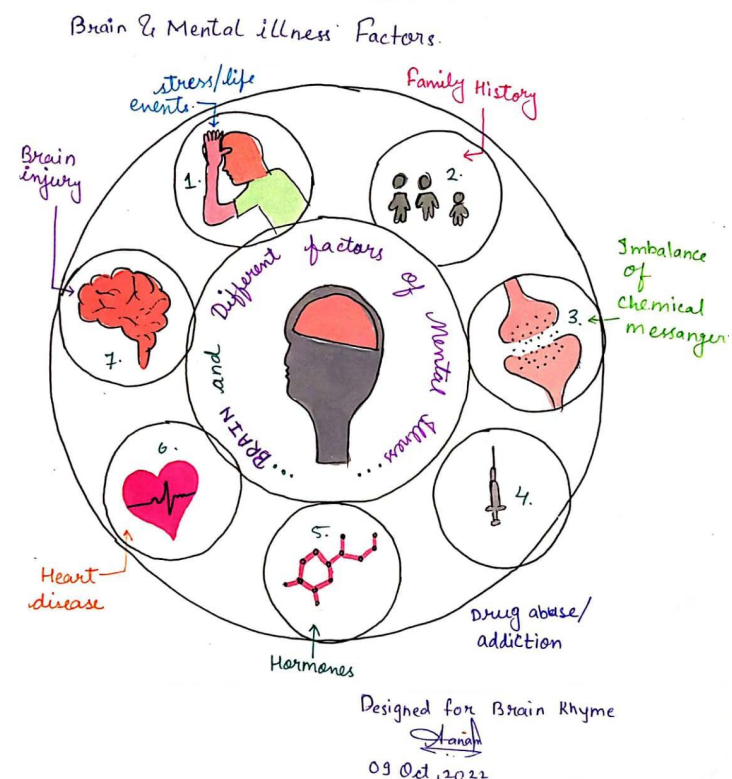 Brain & Mental illness Factors.
stress/life
events.
Family History
Brain
injury
1.
2.
Imbalance
of
chemical
messanger
3.
7.
BRAIN and Different factors of Mental Illness....
6.
4.
5.
Heart
disease
Drug abuse/
addiction
Hormones
Designed for Brain Rhyme
09 Oct, 2022